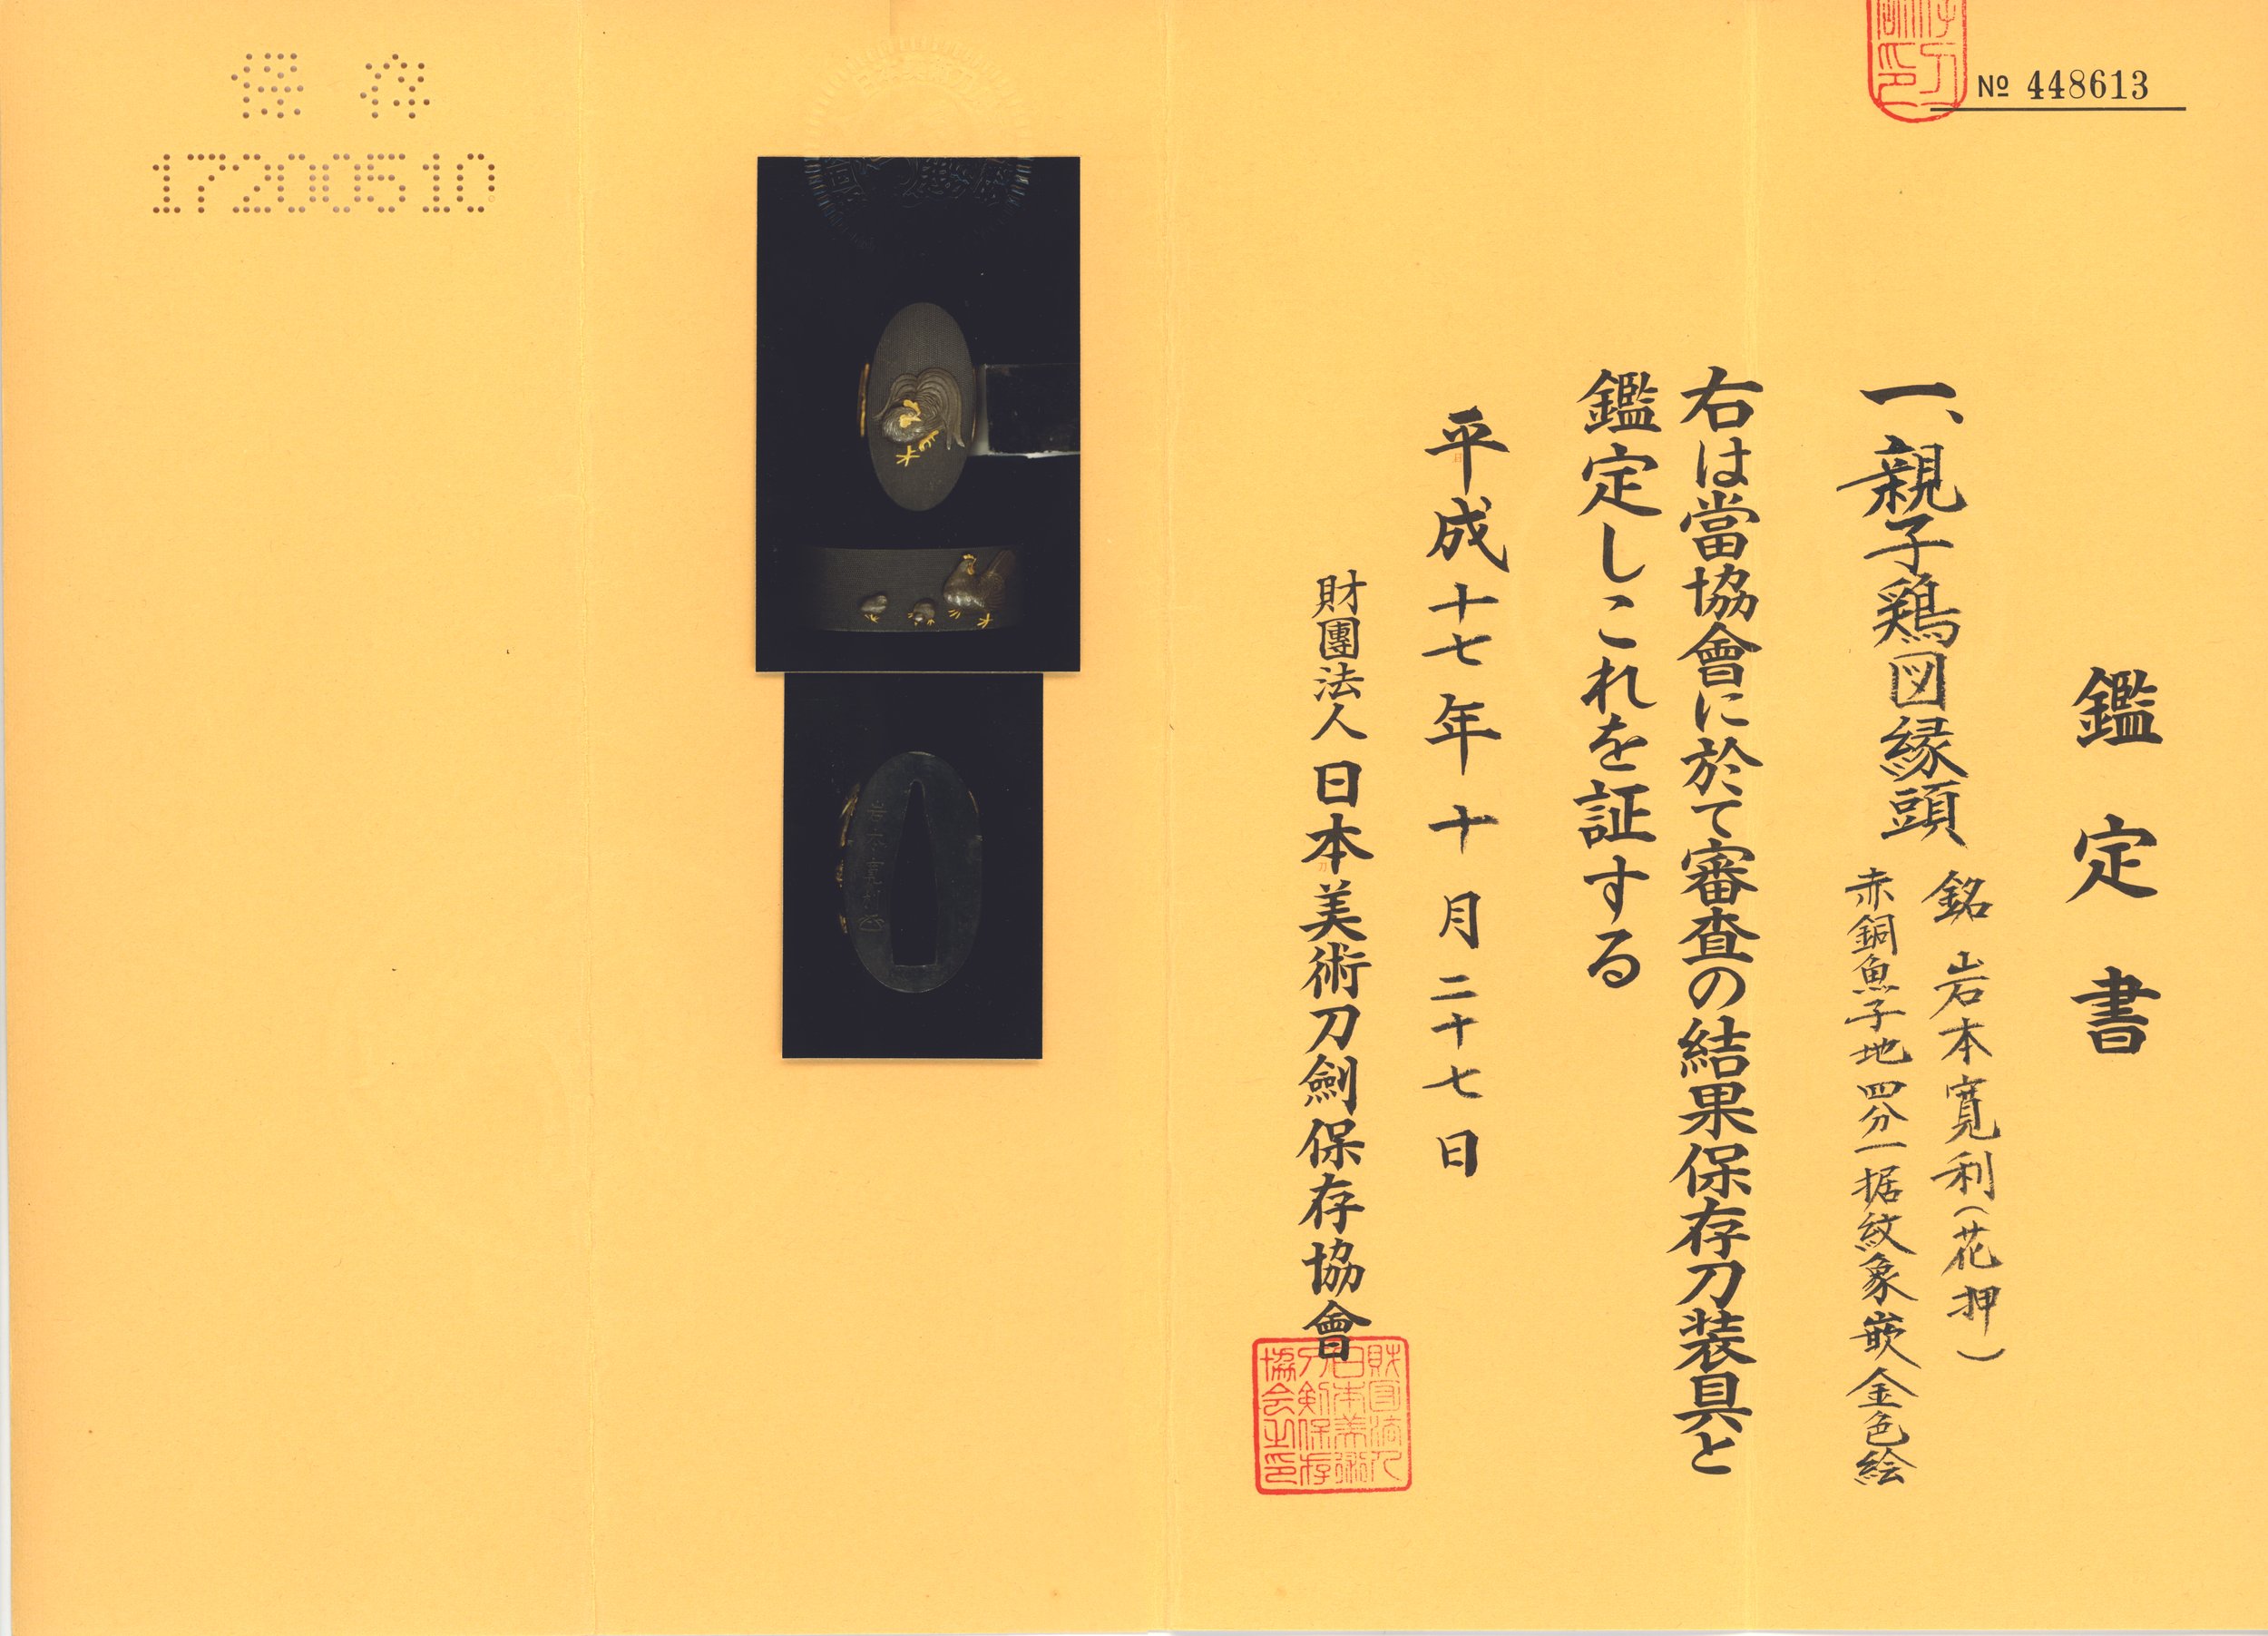 № 448613
鑑定書
一、親子鶏図縁頭
銘 岩本寛利(花押)
赤銅魚子地四分一据紋象嵌金色絵
右は當協會に於て審査の結果保存刀装具と
鑑定しこれを証する
平成十七年十月二十七日
財團法人日本美術刀劍保存協會
財団法人
日本美術
刀剣保存
協会之印
保存
17200510